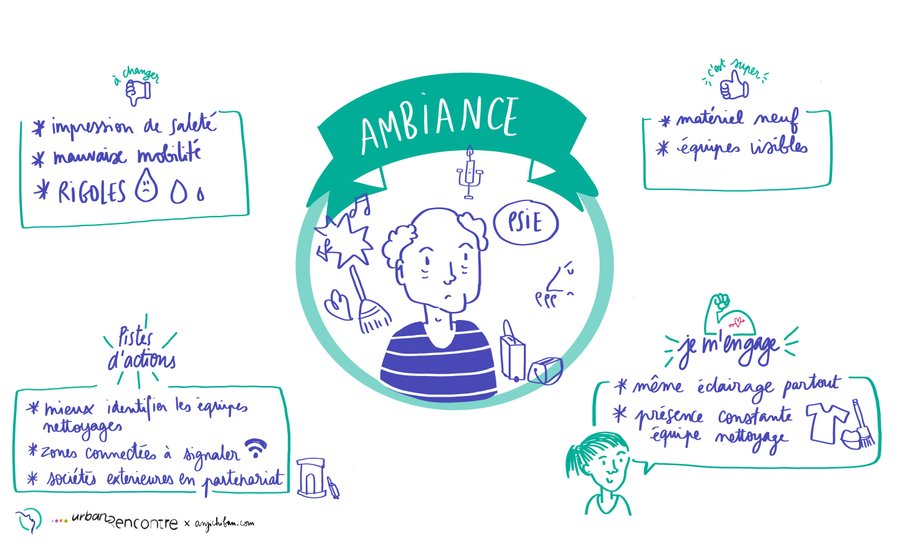 AMBIANCE
PSIE
à changer
* impression de saleté
* mauvaise mobilité
* RIGOLES
c'est super
* matériel neuf
* équipes visibles
Pistes
d'actions
* mieux identifier les équipes
nettoyages
* zones connectées à signaler
* sociétés exterieures en partenariat
je m'engage
* même éclairage partout
* présence constante
équipe nettoyage
urban Rencontre x